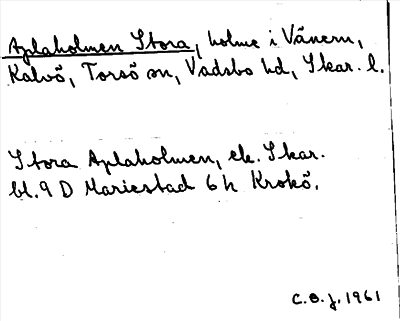 Aplaholmen Stora, holme i Vänern,
Kalvö, Torsö sn, Vadsbo hd, Skar. l.
Stora Aplaholmen, ek. Skar.
bl. 9 D Mariestad 6 h Krokö.
C.O.J. 1961